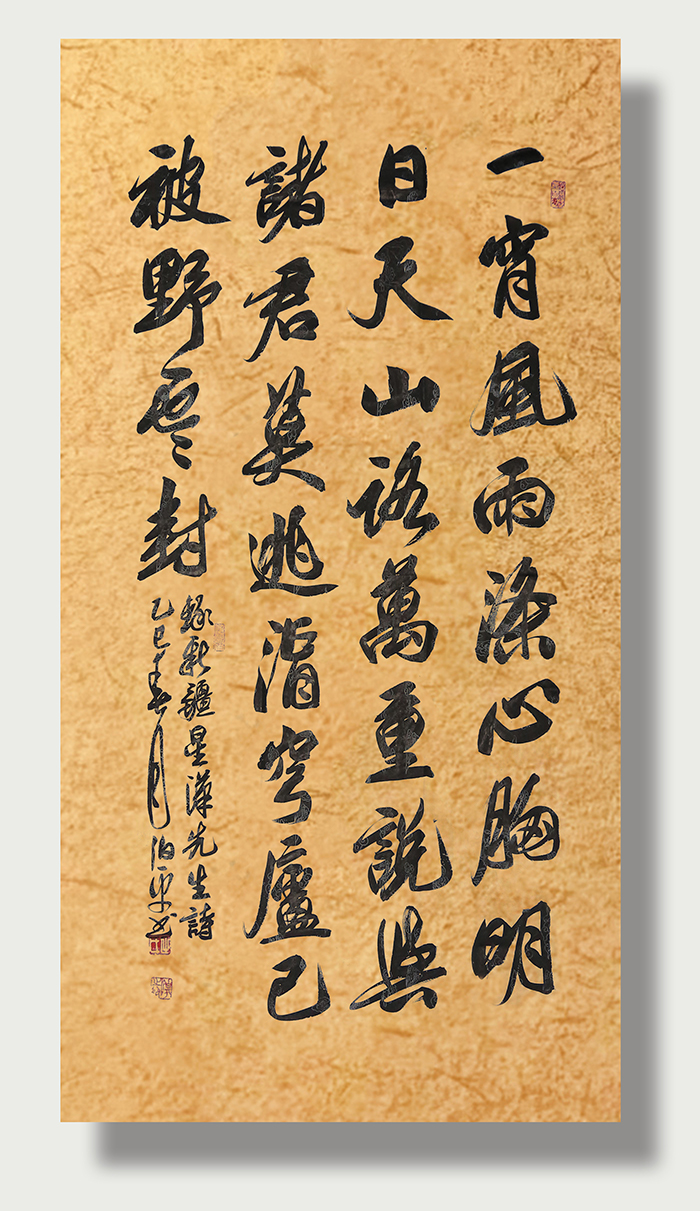 一宵風雨滌心胸明
日天山路萬重說與
諸君莫逃湑穹廬已
被野雲封
錄新疆星漢先生詩
乙巳春月伯平书